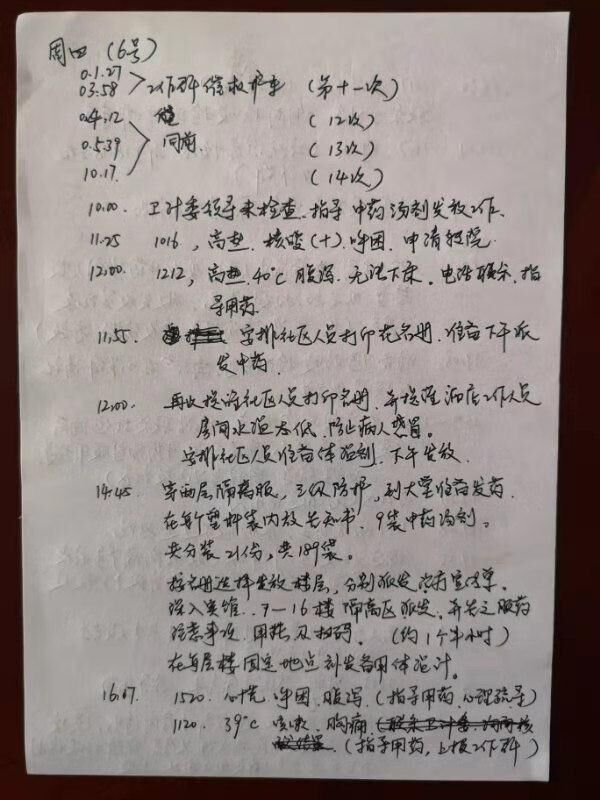 周四 (6号)
0.1.27
03.58 > 工作群催救护车 (第十一次)
04.12 (12次)
0.5.39 > 同前 (13次)
10.17. (14次)
10.00. 卫计委领导来检查.指导中药汤剂发放工作.
11.25 1016, 高热.核酸(+).呼困.申请转院.
12.00. 1212, 高热.40°C 腹泻.无法下床.电话联系.指
导用药.
11.55. 安排社区人员打印花名册.准备下午派
发中药.
12.00. 再次提准社区人员打印名册.并提醒酒店工作人员
房间水温太低.防止病人感冒。
安排社区人员准备体温剂.下午发放.
14.45 穿两层隔离服,三级防护,到大堂准备发药.
在每个塑料袋内放告知书.9袋中药汤剂。
共分装21份,共189袋。
按名册选择发放楼层,分别派发 宣传单.
深入宾馆..7—16楼隔离区派发.并告之服药
注意事项.用耗及扫码. (约1个半小时)
在每层楼固定地点补发备用体温计。
16.07. 1520. 心慌.呼困.腹泻.(指导用药.心理疏导)
1120. 39°C 咳嗽.胸痛.
(指导用药,上报工作群)